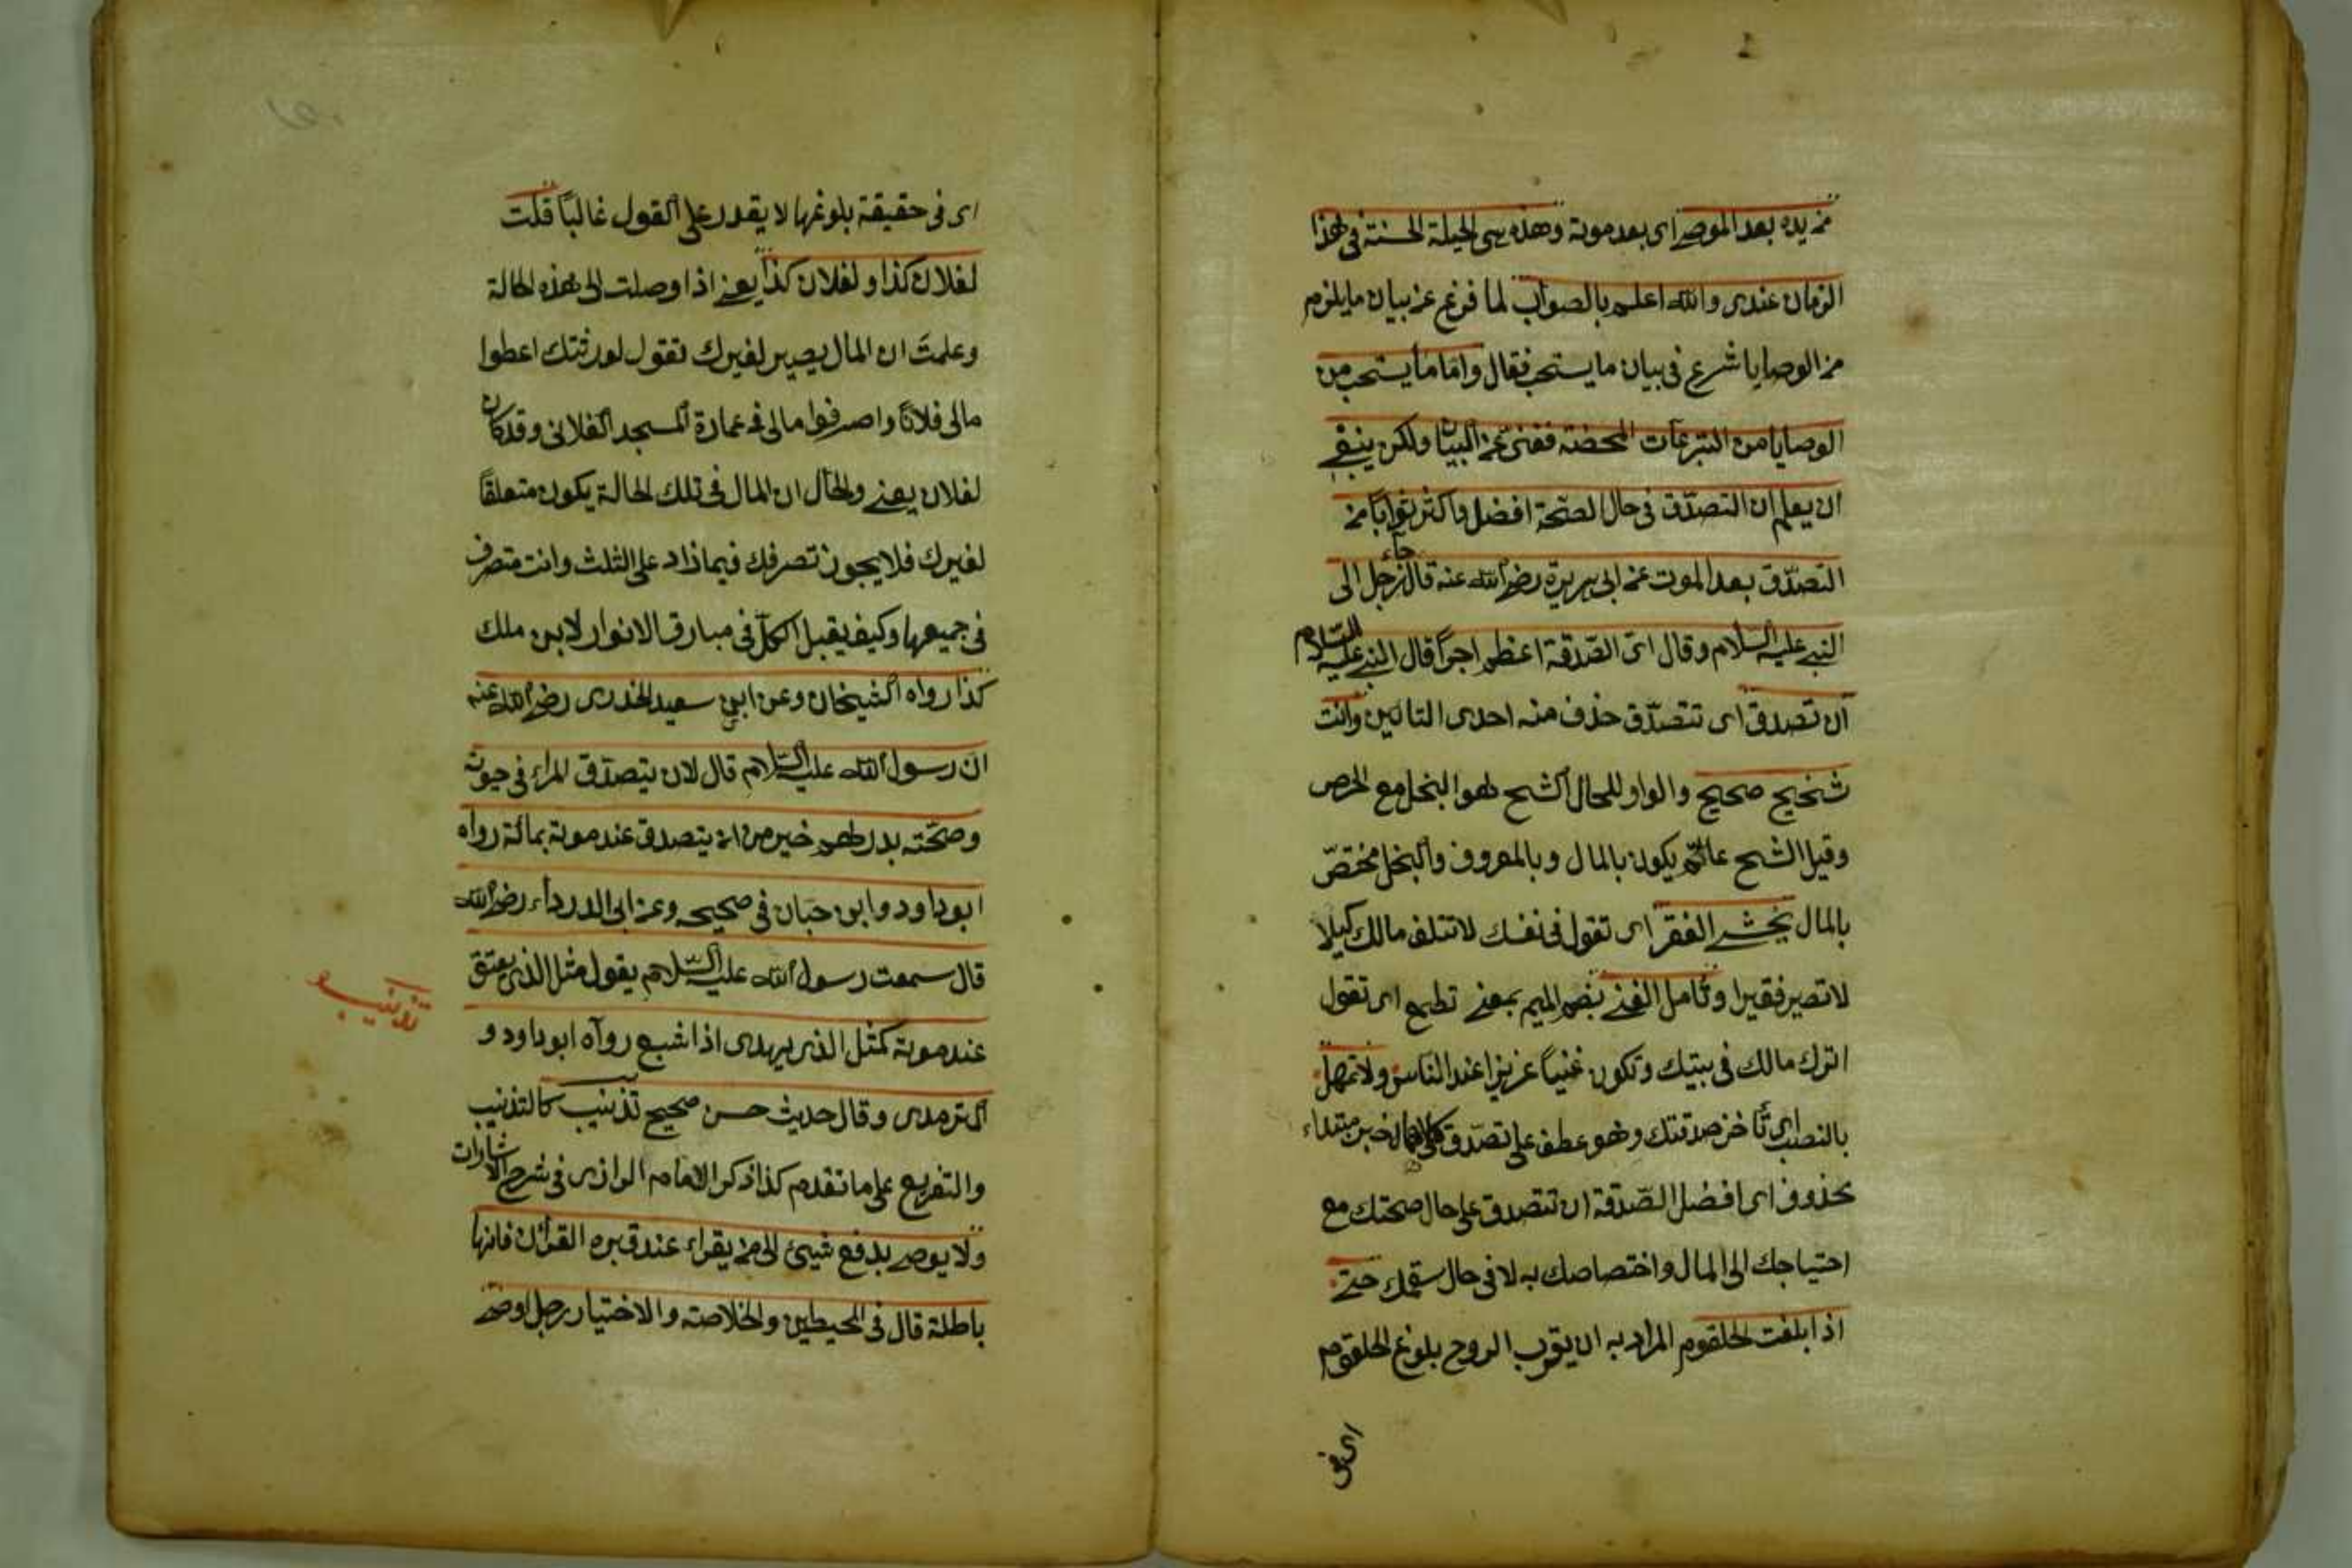 من يده بعد الموصى اى بعد موته وهذه هى الحيلة الحسنة فى هذا
الزمان عندى والله اعلم بالصواب لما فرغ عن بيان ما يلزم
من الوصايا شرع فى بيان ما يستحب فقال واما ما يستحب من
الوصايا من التبرعات المحضة فغنىّ عن البيان ولكن ينبغى
ان يعلم ان التصدّق فى حال الصّحة افضل واكثر ثواباً من
التصدّق بعد الموت عن ابى هريرة رضى الله عنه قال جاء رجل الى
النبى عليه السلام وقال اىّ الصّدقة اعظم اجراً قال النبى عليه السّلام
ان تصدق اى تتصدّق حذف منه احدى التائين وانت
شحيح صحيح والواو للحال الشح هو البخل مع الحرص
وقيل الشح عامّ يكون بالمال وبالمعروف والبخل مختصّ
بالمال تخشى الفقر اى تقول فى نفسك لا تتلف مالك كيلا
لا تصير فقيرا وتأمل الغنى بضم الميم بمعنى تطمع اى تقول
اترك مالك فى بيتك وتكون غنياً عزيزا عند الناس ولا تمهل
بالنصب اى تأخر صدقتك وهو عطف على تصدّق كلاهما خبر مبتداء
محذوف اى افضل الصّدقة ان تتصدق على حال صحتك مع
احتياجك الى المال واختصاصك به لا فى حال سقمك حتى
اذا بلغت الحلقوم المراد به ان يقرب الروح بلوغ الحلقوم
اى فى
اى فى حقيقة بلوغها لا يقدر على القول غالباً قلت
لفلان كذا ولفلان كذا يعنى اذا وصلت الى هذه الحالة
وعلمتَ ان المال يصير لغيرك تقول لورثتك اعطوا
مالى فلاناً واصرفوا مالى فى عمارة المسجد الفلانى وقد كان
لفلان يعنى والحال ان المال فى تلك الحالة يكون متعلقاً
لغيرك فلا يجوز تصرفك فيما زاد على الثلث وانت متصرف
فى جميعها وكيف يقبل الكلّ فى مبارق الانوار لابن ملك
كذا رواه الشيخان وعن ابى سعيد الخدرى رضى الله عنه
ان رسول الله عليه السّلام قال لان يتصدّق المراء فى حيوته
وصحّته بدرهم خير من ان يتصدق عند موته بمائة رواه
ابو داود وابن حبان فى صحيحه وعن ابى الدرداء رضى الله
قال سمعت رسول الله عليه السّلام يقول مثل الذى يعتق
عند موته كمثل الذى يهدى اذا شبع رواه ابو داود و
الترمدى وقال حديث حسن صحيح تذنيب كالتذنيب
والتفريع على ما تقدم كذا ذكر الامام الرازى فى شرح الاشارات
ولا يوصى بدفع شيئ الى من يقراء عند قبره القرأن فانها
باطلة قال فى المحيطين والخلاصة والاختيار رجل اوصى
تذنيب